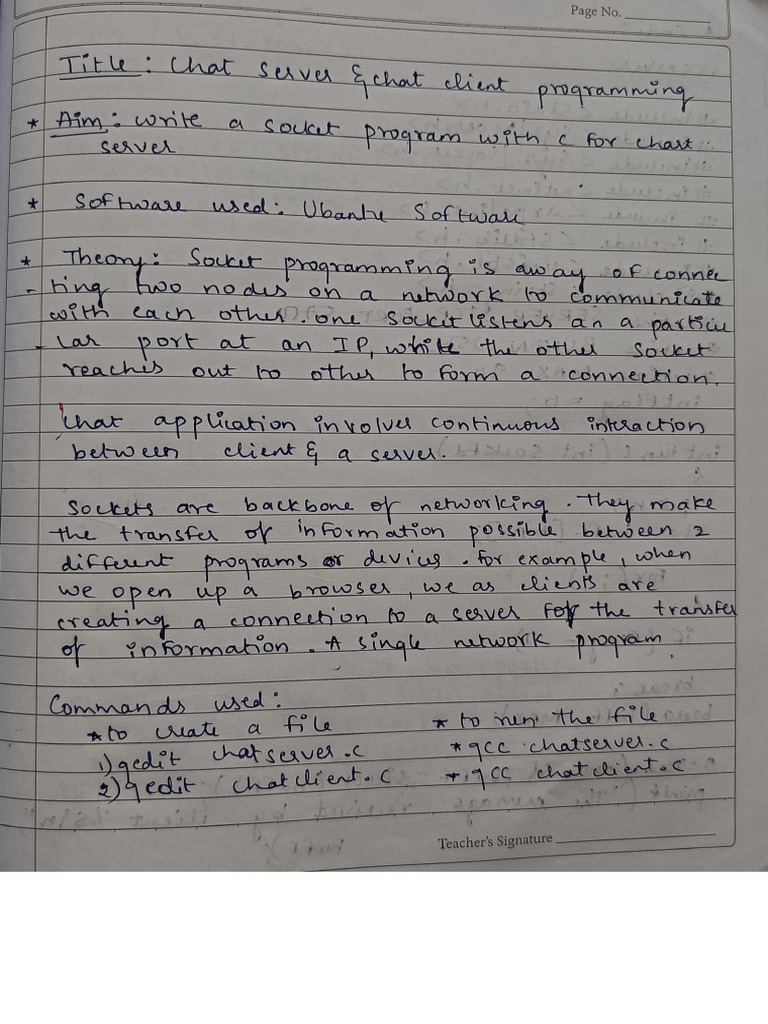 Page No.
Title: Chat server & chat client programming
* Aim: write a socket program with c for chart
server
* Software used: Ubante Software
* Theory: Socket programming is away of connec
-ting two nodes on a network to communicate
with each other. one socket listens an a particu
-lar port at an IP, while the other socket
reaches out to other to form a connection.
Chat application involves continuous interaction
between client & a server.
Sockets are backbone of networking. They make
the transfer of information possible between 2
different programs or devices. For example, when
we open up a browser, we as clients are
creating a connection to a server for the transfer
of information. A single network program
Commands used:
* to create a file * to run the file
1) gedit chatserver.c * gcc chatserver.c
2) gedit chatclient.c * gcc chatclient.c
Teacher's Signature